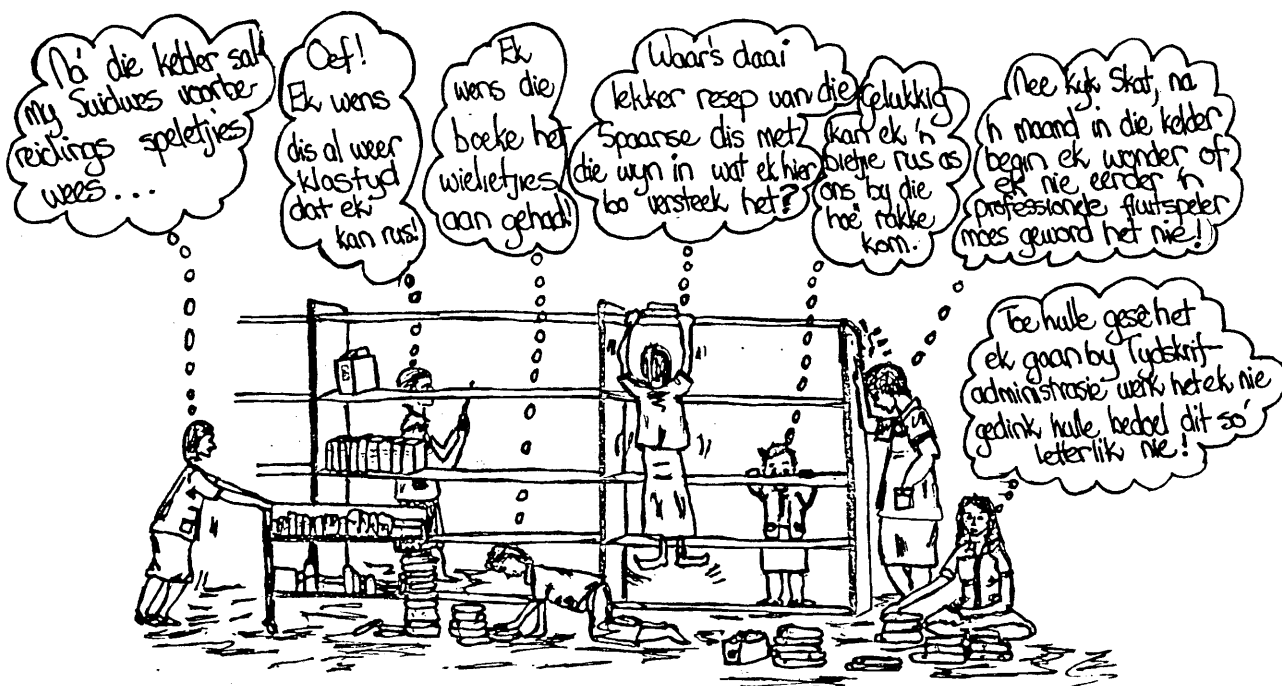 Ná die kelder sal
my Suidwes voorbe-
reidings speletjies
wees...
Oef!
Ek wens
dis al weer
klastyd
dat ek
kan rus!
Ek
wens die
boeke het
wieletjies
aan gehad!
Waar's daai
lekker resep van die
Spaanse dis met
die wyn in wat ek hier
bo versteek het?
Gelukkig
kan ek 'n
bietjie rus as
ons by die
hoë rakke
kom.
Nee kyk Skat, na
'n maand in die kelder
begin ek wonder of
ek nie eerder 'n
professionele fluitspeler
moes geword het nie!
Toe hulle gesê het
ek gaan by Tydskrif-
administrasie werk het ek nie
gedink hulle bedoel dit so
letterlik nie!